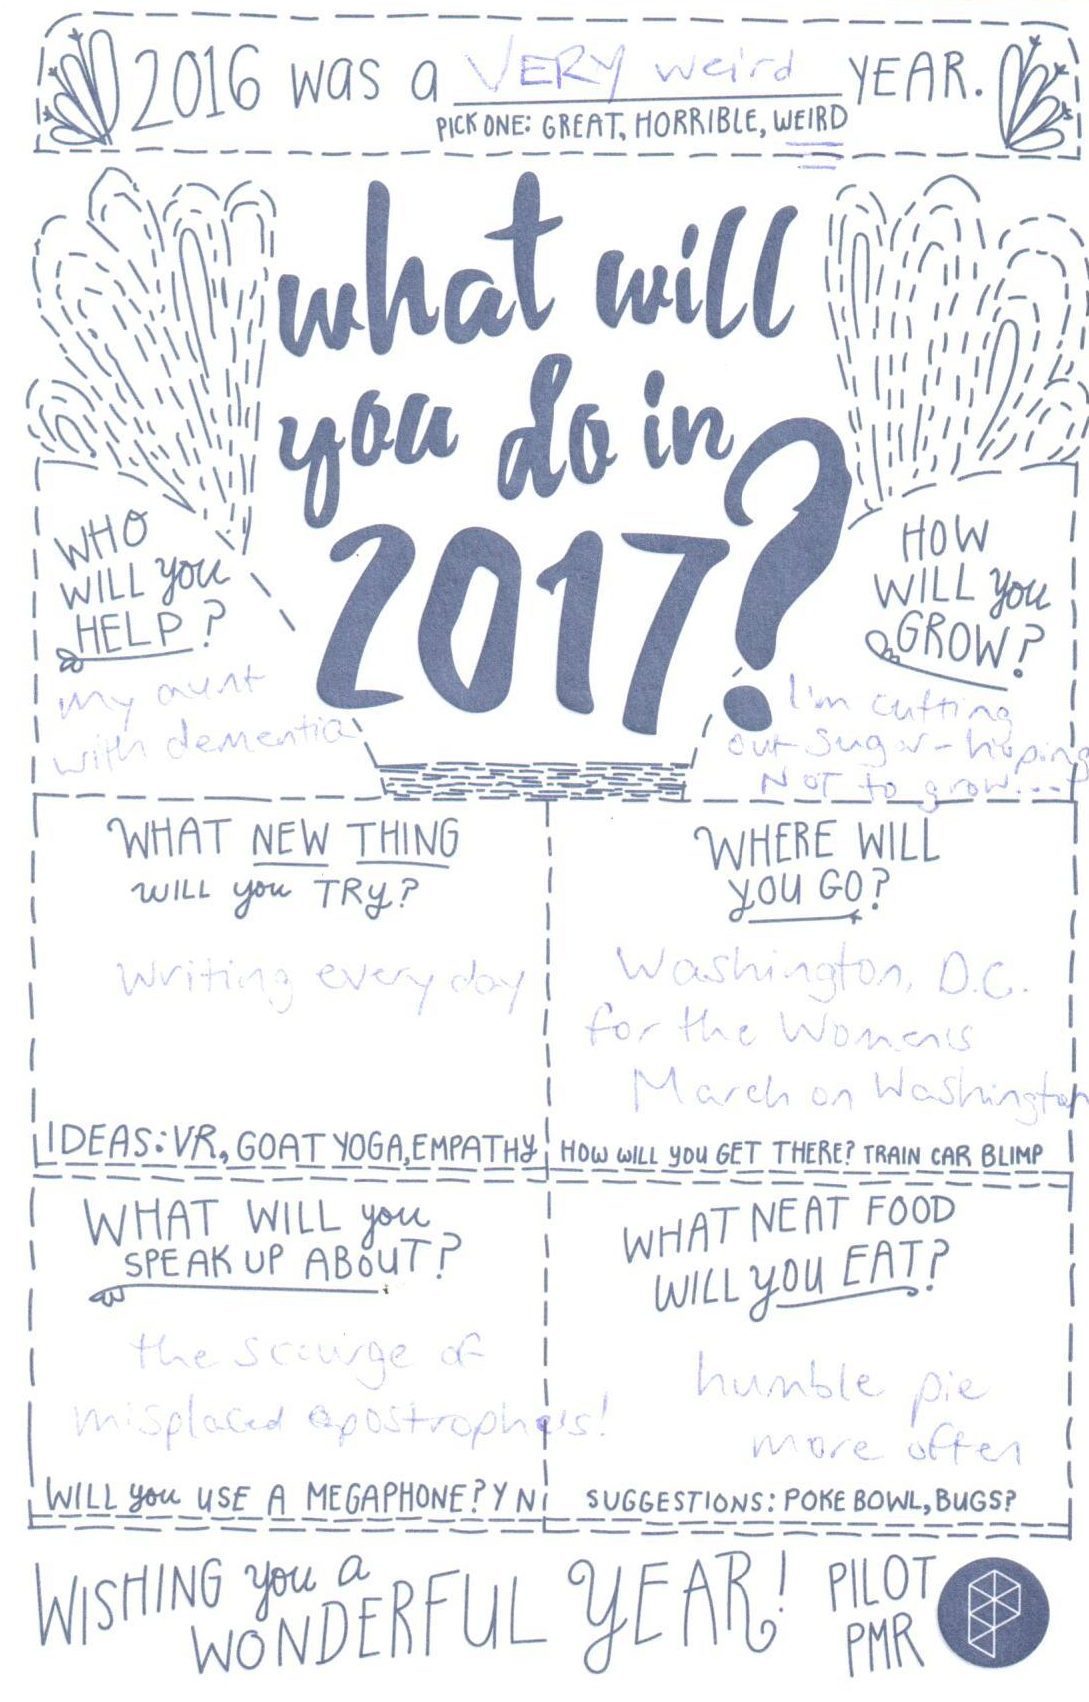 2016 was a VERY weird YEAR.
PICK ONE: GREAT, HORRIBLE, WEIRD
what will
you do in
2017?
WHO
WILL you
HELP?
my aunt
with dementia
HOW
WILL you
GROW?
I'm cutting
out sugar - hoping
NOT to grow...
WHAT NEW THING
WILL you TRY?
Writing every day
IDEAS: VR, GOAT YOGA, EMPATHY
WHERE WILL
YOU GO?
Washington, D.C.
for the Women's
March on Washington
HOW WILL YOU GET THERE? TRAIN CAR BLIMP
WHAT WILL you
SPEAK UP ABOUT?
the scourge of
misplaced apostrophe's!
WILL you USE A MEGAPHONE? Y N
WHAT NEAT FOOD
WILL YOU EAT?
humble pie
more often
SUGGESTIONS: POKE BOWL, BUGS?
WISHING you a
WONDERFUL YEAR!
PILOT
PMR